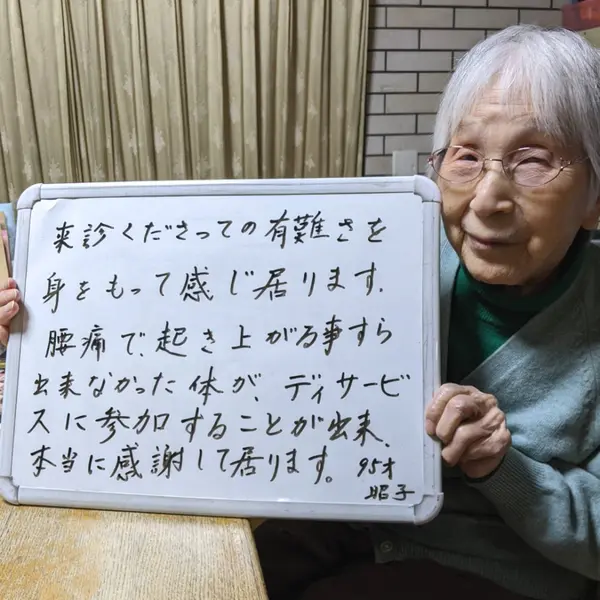 来診くださっての有難さを
身をもって感じ居ります.
腰痛で、起き上がる事すら
出来なかった体が、ディサービ
スに参加することが出来、
本当に感謝して居ります。 95才
昭子